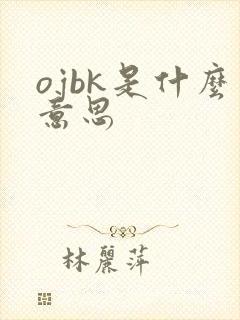 ojbk是什麼
意思
林麗萍